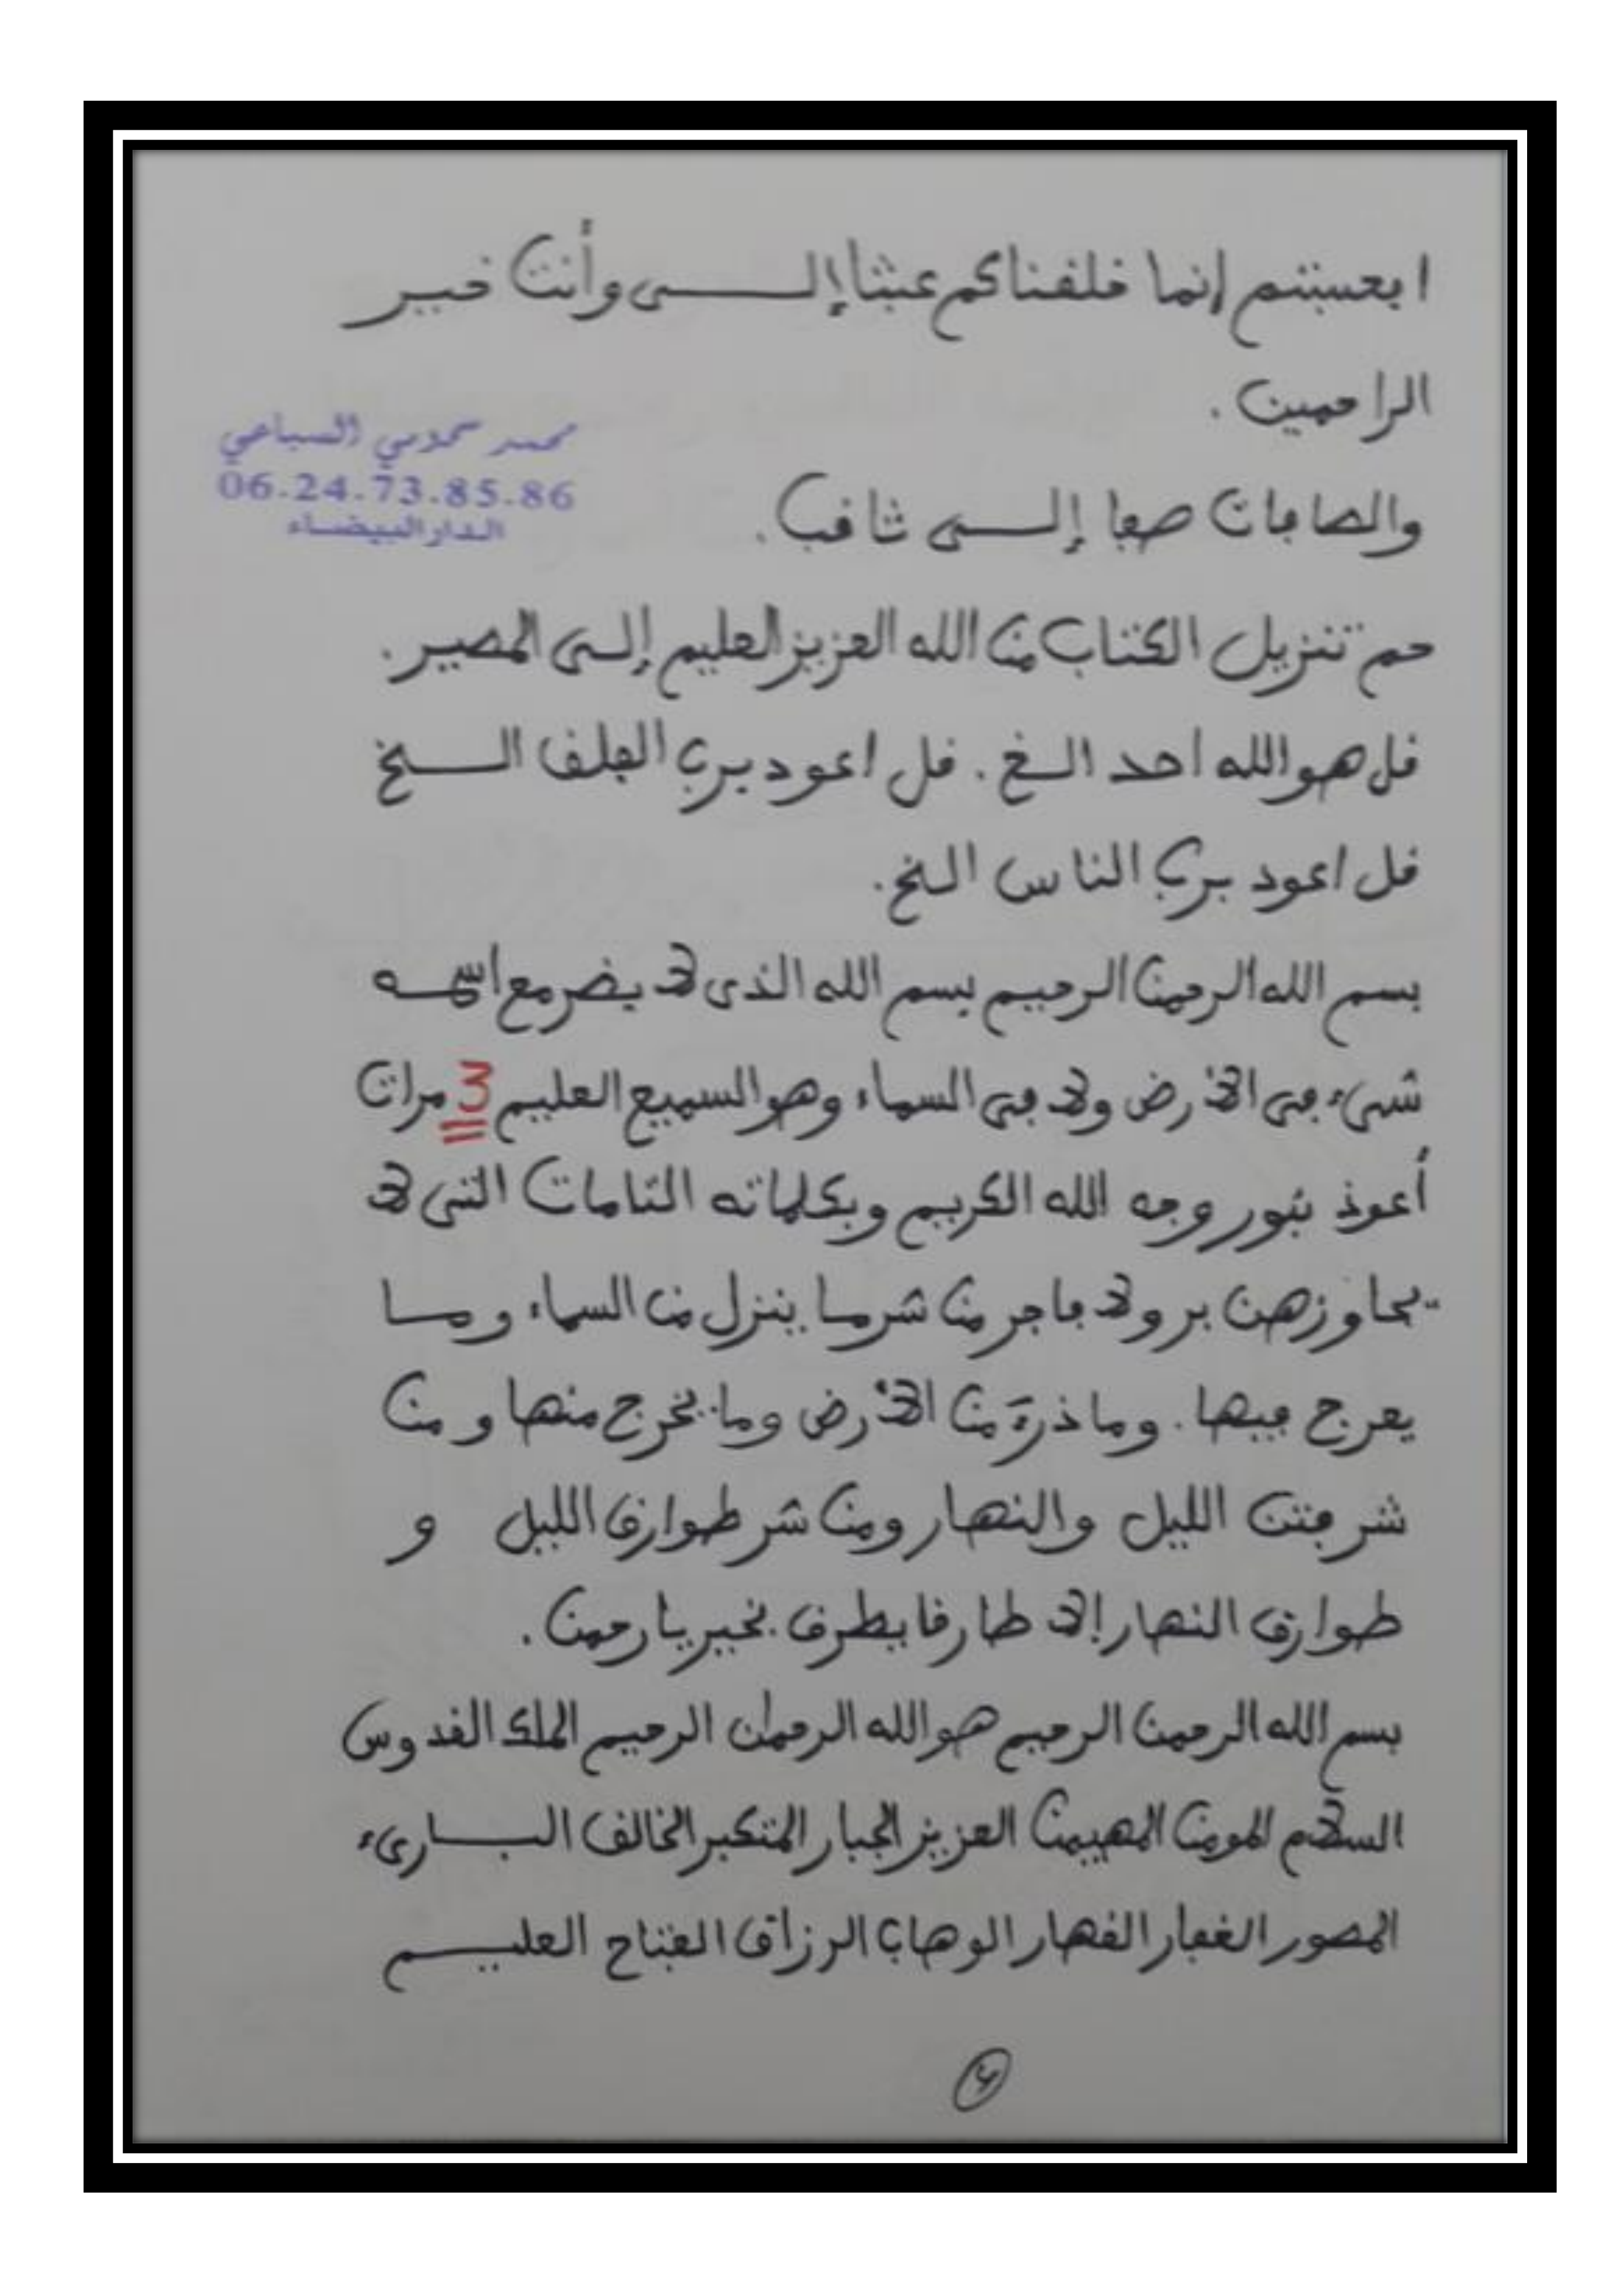 ابحسبتم إنما خلقناكم عبثا إلـــى وأنت خير
الراحمين.
محمد حمودي السباعي
06.24.73.85.86
الدار البيضاء
والصافات صفا إلـــى ثاقب.
حم تنزيل الكتاب من الله العزيز العليم إلى المصير.
قل هو الله احد الـخ. قل اعود برب الفلق الـــخ
قل اعود برب الناس الخ.
بسم الله الرحمن الرحيم بسم الله الذى لا يضر مع اسمه
شىء فى الأرض ولا فى السماء وهو السميع العليم 3 مرات
أعوذ بنور وجه الله الكريم وبكلماته التامات التى لا
يجاوزهن بر ولا فاجر من شر ما ينزل من السماء ومـا
يعرج فيها. وما ذرئ من الأرض وما يخرج منها ومن
شر فتن الليل والنهار ومن شر طوارق الليل و
طوارق النهار إلا طارقا يطرق بخير يا رحمن.
بسم الله الرحمن الرحيم هو الله الرحمان الرحيم الملك القدوس
السلام المومن المهيمن العزيز الجبار المتكبر الخالق البـــارىء
المصور الغفار القهار الوهاب الرزاق الفتاح العليــم